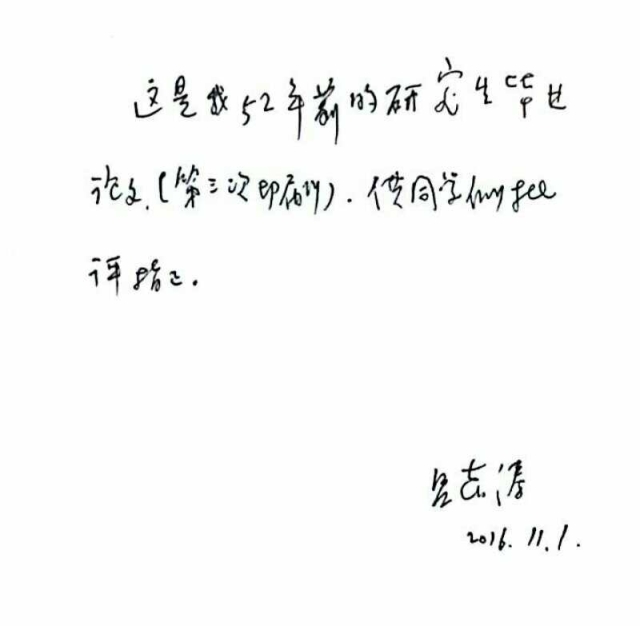 这是我52年前的研究生毕业
论文.(第三次印刷).供同学们批
评指正.
吕志涛
2016.11.1.